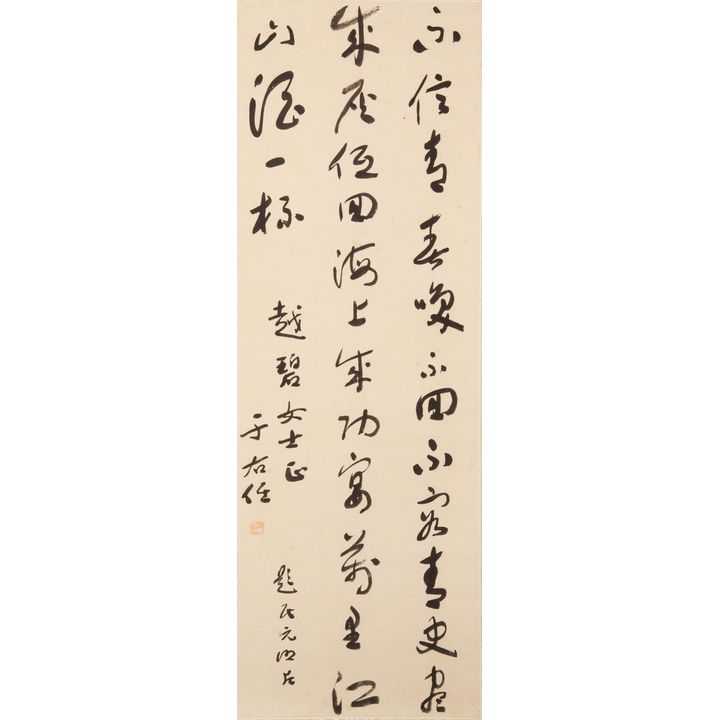 不信青春喚不回不容青史盡
成灰低回海上成功宴萬里江
山酒一杯
越碧女士正
于右任
題民元照片